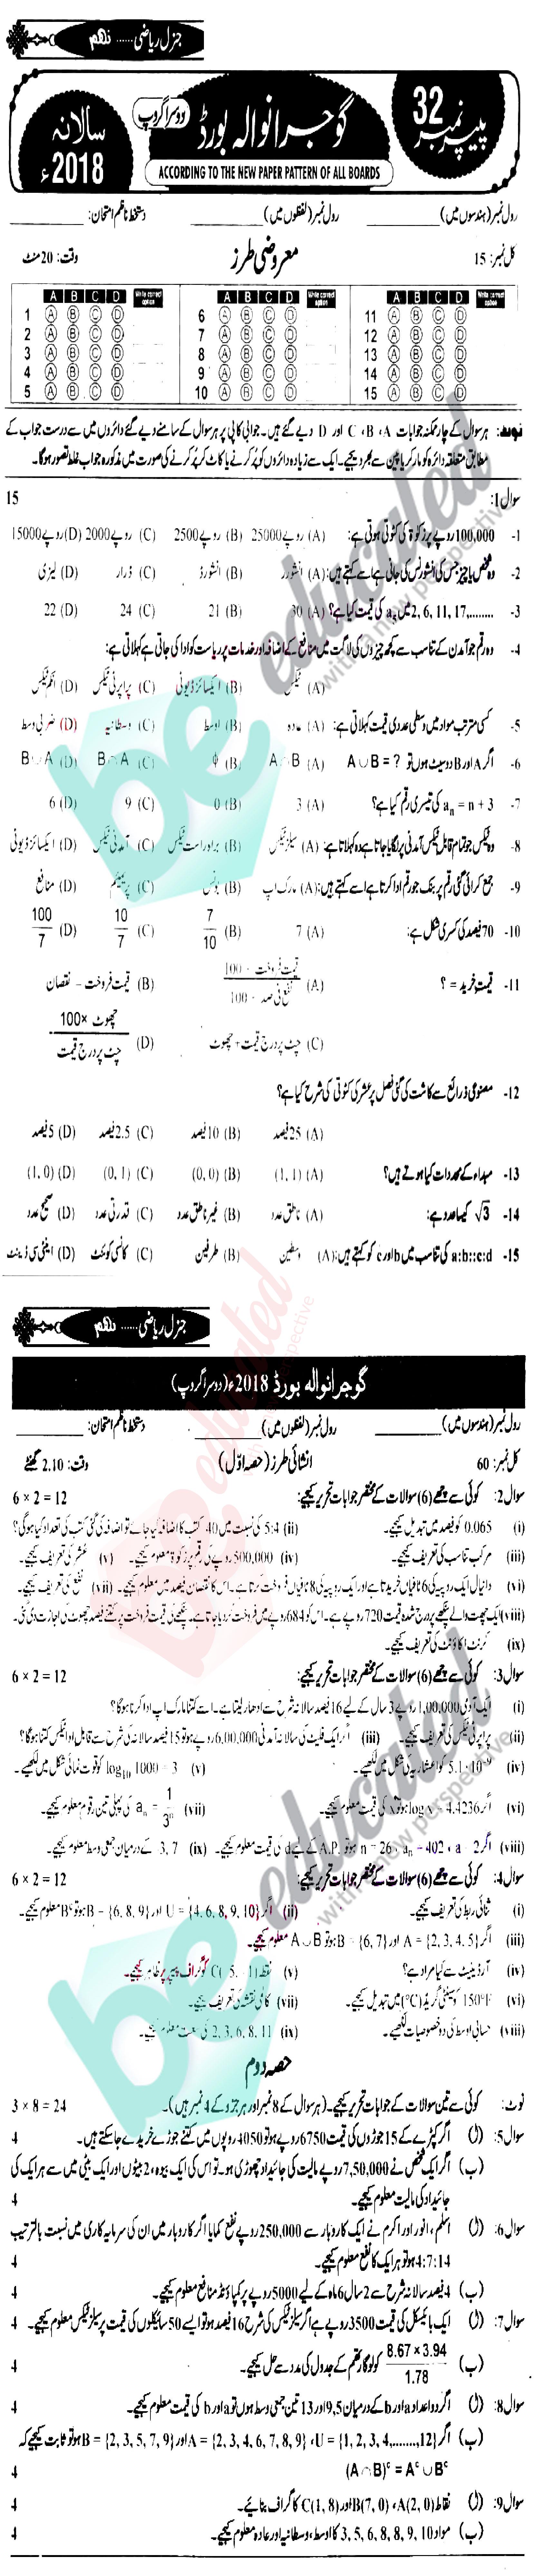 جنرل ریاضی ...... نہم
پیپر نمبر 32
گوجرانوالہ بورڈ
دوسرا گروپ
سالانہ 2018ء
ACCORDING TO THE NEW PAPER PATTERN OF ALL BOARDS
رول نمبر (ہندسوں میں) ________ رول نمبر (لفظوں میں) ________ دستخط ناظم امتحان: ________
کل نمبر: 15 معروضی طرز وقت: 20 منٹ
A B C D Write correct option A B C D Write correct option A B C D Write correct option
1 A B C D 6 A B C D 11 A B C D
2 A B C D 7 A B C D 12 A B C D
3 A B C D 8 A B C D 13 A B C D
4 A B C D 9 A B C D 14 A B C D
5 A B C D 10 A B C D 15 A B C D
نوٹ: ہر سوال کے چار ممکنہ جوابات A، B، C اور D دیے گئے ہیں۔ جوابی کاپی پر ہر سوال کے سامنے دیے گئے دائروں میں سے درست جواب کے
مطابق متعلقہ دائرہ کو مارکر یا پین سے بھر دیجیے۔ ایک سے زیادہ دائروں کو پُر کرنے یا کاٹ کر پُر کرنے کی صورت میں مذکورہ جواب غلط تصور ہوگا۔
سوال 1: 15
1- 100,000 روپے پر زکوٰۃ کی کٹوتی ہوتی ہے: (A) 25000 روپے (B) 2500 روپے (C) 2000 روپے (D) 15000 روپے
2- وہ شخص یا چیز جس کی انشورنس کی جاتی ہے اسے کہتے ہیں: (A) انشورر (B) انشورڈ (C) ڈرار (D) لیزی
3- 2, 6, 11, 17,........ میں a₆ کی قیمت کیا ہے؟ (A) 30 (B) 21 (C) 24 (D) 22
4- وہ رقم جو آمدن کے تناسب سے کچھ چیزوں کی لاگت میں منافع کے اضافہ اور خدمات پر ریاست کو ادا کی جاتی ہے کہلاتی ہے:
(A) ٹیکس (B) ایکسائز ڈیوٹی (C) پراپرٹی ٹیکس (D) انکم ٹیکس
5- کسی مرتب مواد میں وسطی عددی قیمت کہلاتی ہے: (A) عادہ (B) اوسط (C) وسطانیہ (D) ضربی وسط
6- اگر A اور B دو سیٹ ہوں تو A ∪ B = ? (A) A ∩ B (B) ϕ (C) B ∩ A (D) B ∪ A
7- aₙ = n + 3 کی تیسری رقم کیا ہے؟ (A) 3 (B) 0 (C) 9 (D) 6
8- وہ ٹیکس جو تمام قابل ٹیکس آمدنی پر لگایا جاتا ہے وہ کہلاتا ہے: (A) سیلز ٹیکس (B) براہ راست ٹیکس (C) آمدنی ٹیکس (D) ایکسائز ڈیوٹی
9- جمع کرائی گئی رقم پر بنک جو رقم ادا کرتا ہے اسے کہتے ہیں: (A) مارک اپ (B) بونس (C) پریمیئم (D) منافع
10- 70 فیصد کی کسری شکل ہے: (A) 7 (B) 7/10 (C) 10/7 (D) 100/7
11- قیمت خرید = ؟ (A) قیمت فروخت × 100 / نفع فی صد + 100 (B) قیمت فروخت − نقصان
(C) چٹ پر درج قیمت + چھوٹ (D) چھوٹ ×100 / چٹ پر درج قیمت
12- مصنوعی ذرائع سے کاشت کی گئی فصل پر عشر کی کٹوتی کی شرح کیا ہے؟
(A) 25 فیصد (B) 10 فیصد (C) 2.5 فیصد (D) 5 فیصد
13- مبداء کے محددات کیا ہوتے ہیں؟ (A) (1, 1) (B) (0, 0) (C) (0, 1) (D) (1, 0)
14- √3 کیسا عدد ہے: (A) ناطق عدد (B) غیر ناطق عدد (C) قدرتی عدد (D) صحیح عدد
15- a:b::c:d کی تناسب میں b اور c کو کہتے ہیں: (A) وسطین (B) طرفین (C) کانسی کوئنٹ (D) اینٹی سی ڈینٹ
جنرل ریاضی ...... نہم
گوجرانوالہ بورڈ 2018ء (دوسرا گروپ)
رول نمبر (ہندسوں میں) ________ رول نمبر (لفظوں میں) ________ دستخط ناظم امتحان: ________
کل نمبر: 60 انشائی طرز (حصہ اوّل) وقت: 2.10 گھنٹے
سوال 2: کوئی سے چھے (6) سوالات کے مختصر جوابات تحریر کیجیے: 6 x 2 = 12
(i) 0.065 کو فیصد میں تبدیل کیجیے۔ (ii) 5:4 کی نسبت میں 40 کتب کا اضافہ کیا جائے تو اضافہ کی گئی کتب کی تعداد کیا ہوگی؟
(iii) مرکب تناسب کی تعریف کیجیے۔ (iv) 500,000 روپے کی رقم پر زکوٰۃ معلوم کیجیے۔ (v) عشر کی تعریف کیجیے۔
(vi) دانیال ایک روپیہ کی 6 ٹافیاں خریدتا ہے اور ایک روپیہ کی 8 ٹافیاں فروخت کرتا ہے۔ اس کا نقصان فیصد میں معلوم کیجیے۔ (vii) نفع کی تعریف کیجیے۔
(viii) ایک چھت والے پنکھے پر درج شدہ قیمت 720 روپے ہے۔ اس کو 684 روپے میں فروخت کر دیا جاتا ہے۔ پنکھے کی قیمت فروخت پر کتنے فیصد چھوٹ کی اجازت دی گئی۔
(ix) کرنٹ اکاؤنٹ کی تعریف کیجیے۔
سوال 3: کوئی سے چھے (6) سوالات کے مختصر جوابات تحریر کیجیے: 6 x 2 = 12
(i) ایک آدمی 1,00,000 روپے 3 سال کے لیے 16 فیصد سالانہ شرح سے ادھار لیتا ہے۔ اسے کتنا مارک اپ ادا کرنا ہوگا؟
(ii) پراپرٹی ٹیکس کی تعریف کیجیے۔ (iii) اگر ایک فلیٹ کی سالانہ آمدنی 6,00,000 روپے ہو تو 15 فیصد سالانہ کی شرح سے قابل ادا ٹیکس کتنا ہوگا؟
(iv) کو اعشاریہ کی شکل میں لکھیے۔ (v) log₁₀ 1000 = 3 کو قوت نمائی شکل میں لکھیے۔
(vi) اگر log x = 4.4236 ہو تو x کی قیمت معلوم کیجیے۔ (vii) aₙ = 1/3ⁿ کی پہلی تین رقوم معلوم کیجیے۔
(viii) اگر a = 2، aₙ = 402، n = 26 ہو تو A.P. کے لیے d کی قیمت معلوم کیجیے۔ (ix) 3, 7 کے درمیان جمعی وسط معلوم کیجیے۔
سوال 4: کوئی سے چھے (6) سوالات کے مختصر جوابات تحریر کیجیے: 6 x 2 = 12
(i) ثنائی ربط کی تعریف کیجیے۔ (ii) اگر U = {4, 6, 8, 9, 10} اور B = {6, 8, 9} ہو تو Bᶜ معلوم کیجیے۔
(iii) اگر A = {2, 3, 4, 5} اور B = {6, 7} ہو تو A ∪ B معلوم کیجیے۔
(iv) آرڈینیٹ سے کیا مراد ہے؟ (v) نقطہ C(−5, −1) کو گراف پیپر پر ظاہر کیجیے۔
(vi) 150°F کو سینٹی گریڈ (°C) میں تبدیل کیجیے۔ (vii) کالمی نقشہ کی تعریف کیجیے۔
(viii) حسابی اوسط کی دو خصوصیات لکھیے۔ (ix) 2, 3, 6, 8, 11 کی سعت معلوم کیجیے۔
حصہ دوم
نوٹ: کوئی سے تین سوالات کے جوابات تحریر کیجیے۔ (ہر سوال کے 8 نمبر اور ہر جزو کے 4 نمبر ہیں)۔ 3 x 8 = 24
سوال 5: (ا) اگر کپڑے کے 15 جوڑوں کی قیمت 6750 روپے ہو تو 4050 روپوں میں کتنے جوڑے خریدے جا سکتے ہیں۔ 4
(ب) اگر ایک شخص نے 7,50,000 روپے مالیت کی جائیداد چھوڑی ہو۔ تو اس کی ایک بیوہ، 2 بیٹوں اور ایک بیٹی میں سے ہر ایک کی
جائیداد کی مالیت معلوم کیجیے۔ 4
سوال 6: (ا) اسلم، انور اور اکرم نے ایک کاروبار سے 250,000 روپے نفع کمایا اگر کاروبار میں ان کی سرمایہ کاری میں نسبت بالترتیب
4:7:14 ہو تو ہر ایک کا نفع معلوم کیجیے۔ 4
(ب) 4 فیصد سالانہ شرح سے 2 سال 6 ماہ کے لیے 5000 روپے پر کمپاؤنڈ منافع معلوم کیجیے۔ 4
سوال 7: (ا) ایک بائیسکل کی قیمت 3500 روپے ہے اگر سیلز ٹیکس کی شرح 16 فیصد ہو تو ایسے 50 سائیکلوں کی قیمت پر سیلز ٹیکس معلوم کیجیے۔ 4
(ب) 8.67 × 3.94 / 1.78 کو لوگارتھم کے جدول کی مدد سے حل کیجیے۔ 4
سوال 8: (ا) اگر دو اعداد a اور b کے درمیان 9,5 اور 13 تین جمعی وسط ہوں تو a اور b کی قیمت معلوم کیجیے۔ 4
(ب) اگر U = {1, 2, 3, 4,.......,12}، A = {2, 3, 4, 6, 7, 8, 9} اور B = {2, 3, 5, 7, 9} ہو تو ثابت کیجیے کہ
(A ∩ B)ᶜ = Aᶜ ∪ Bᶜ 4
سوال 9: (ا) نقاط A(2, 0)، B(7, 0) اور C(1, 8) کا گراف بنائیے۔ 4
(ب) مواد 3, 5, 6, 8, 8, 9, 10 کا اوسط، وسطانیہ اور عادہ معلوم کیجیے۔ 4
be educated
with a new perspective